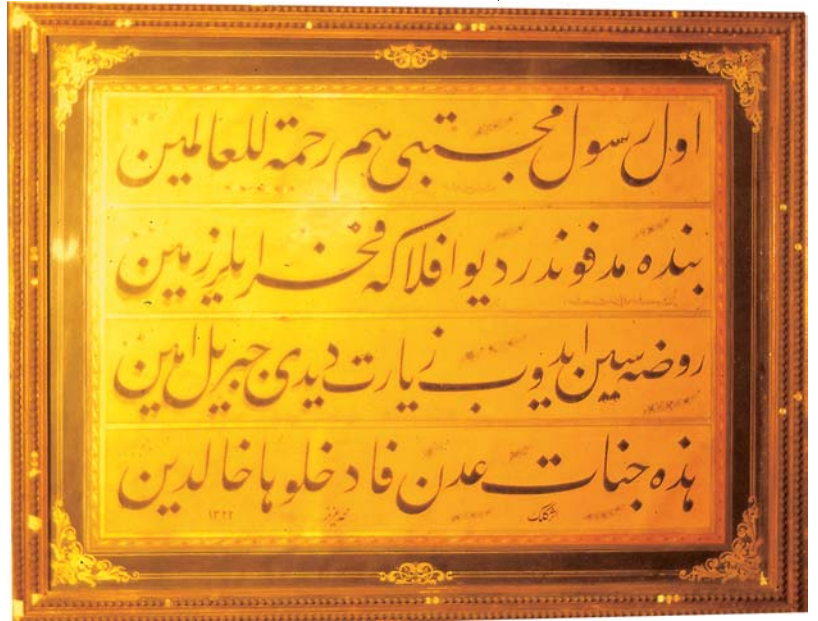 اول رسول مجتبى هم رحمة للعالمين
بنده مدفوندر ديو افلاكه فخر ايلر زمين
روضه سين ايدوب زيارت ديدى جبريل امين
هذه جنات عدن فادخلوها خالدين
محمد عزيز ١٣٢٢